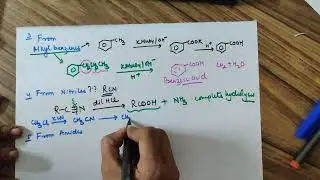 3 From
Alkyl benzenes CH3 KMnO4/OH- COOK H+ COOH
CH2CH2CH3 KMnO4/OH- COOH CO2 + H2O
Benzoic acid
4 From Nitriles ?? RCN
R-C≡N dil HCl RCOOH + NH3 complete hydrolysis
CH3Cl KCN CH3CN CH
5 From Amides